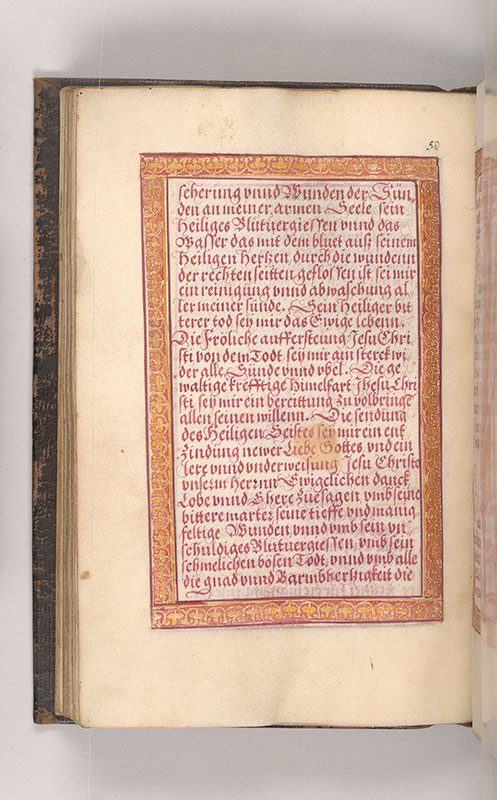 50
seherung vnnd Wunden der Sün
den an meiner armen Seele sein
heiliges Blutuergiessen vnnd das
Wasser das mit dem bluet auß seinem
Heiligen Hertzen, durch die wundenn
der rechten seitten geflossen ist sei mir
ein reinigung vnnd abwaschung al
ler meiner sünde. Sein Heiliger bit
terer tod sey mir das Ewige lebenn.
Die Fröliche auffersteung Jesu Chri
sti von dem Todt sey mir ain sterck wi
der alle Sünde vnnd vbel. Die ge
waltige krefftige Himelfart Jhesu Chri
sti sey mir ein bereittung zu volbringe
allen seinen willenn. Die sendung
des Heiligen Geistes sey mir ein ent
Zindung newer Liebe Gottes vnd ein
lere vnnd vnderweisung Jesu Christo
vnserm herrnn Ewigelichen danck
Lobe vnnd Ehere Zuesagen vmb seine
bittere marter seine tieffe vnd manig
feltige Wunden vnnd vmb sein vn
schuldiges Blutuergiessen, vmb sein
schmelichen bosen Todt, vnnd vmb alle
die gnad vnnd Barmbhertzigkeit die